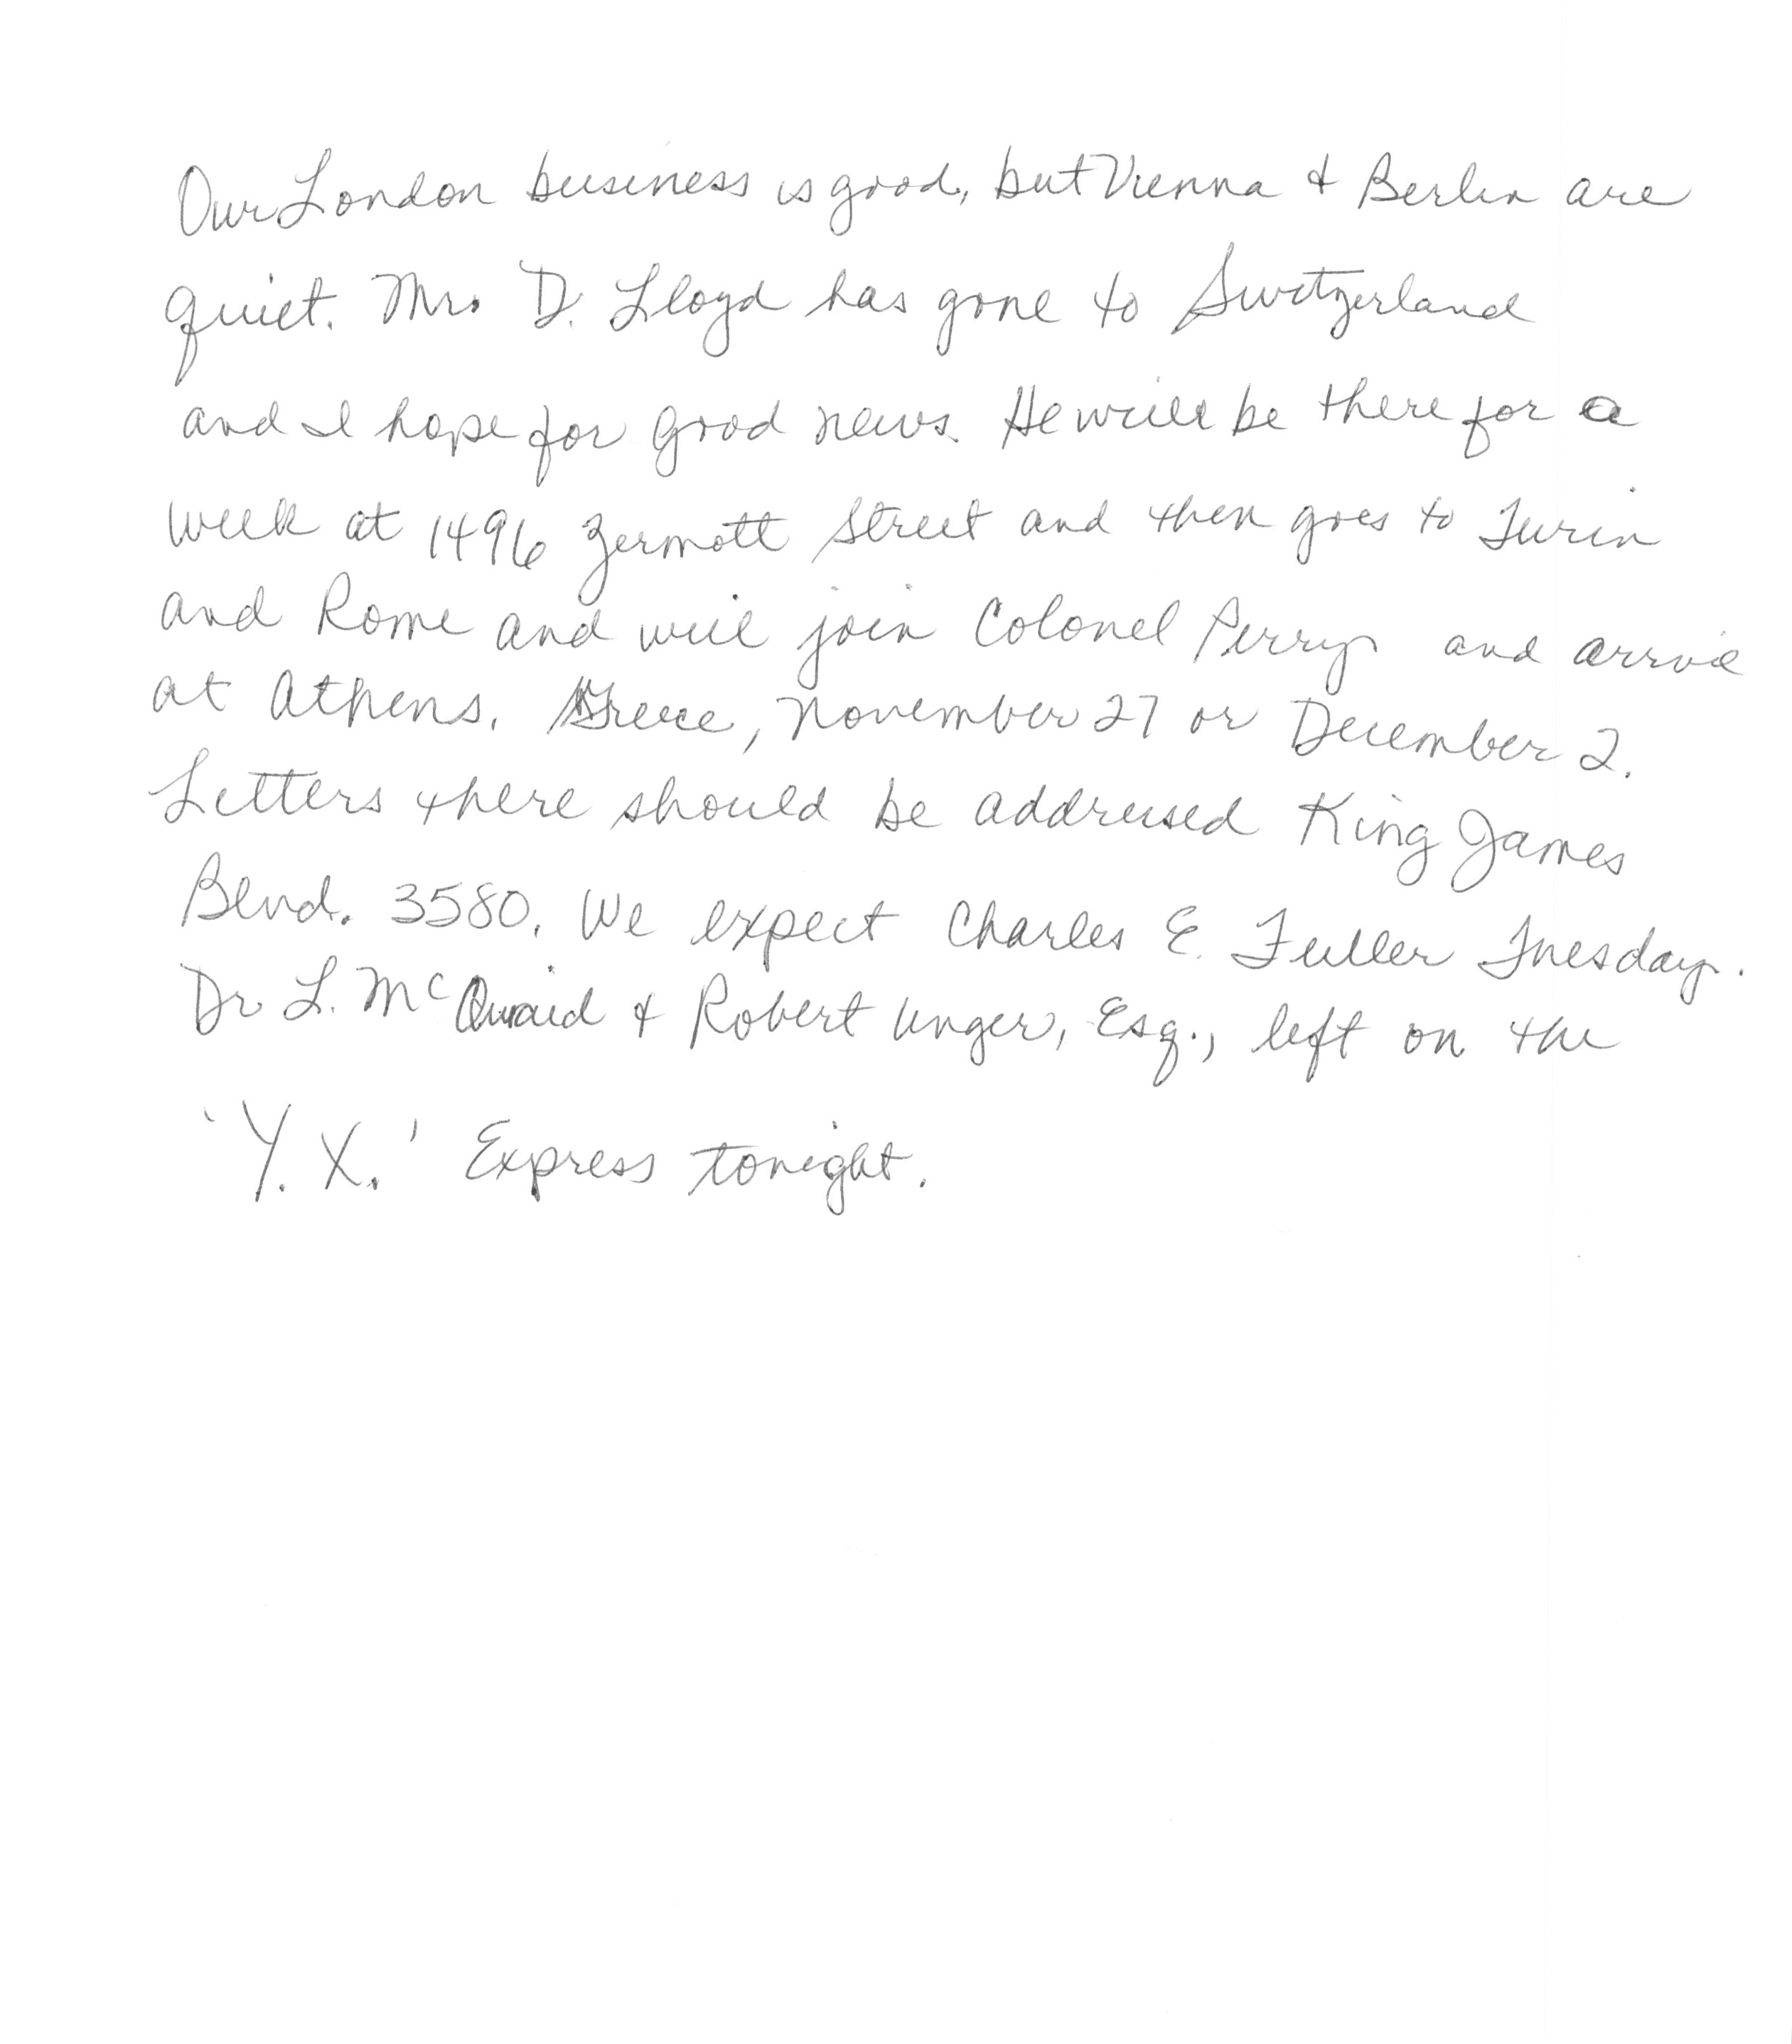 Our London business is good, but Vienna & Berlin are
quiet. Mr. D. Lloyd has gone to Switzerland
and I hope for good news. He will be there for a
week at 1496 Zermott Street and then goes to Turin
and Rome and will join Colonel Perry and arrive
at Athens. Greece, November 27 or December 2.
Letters there should be addressed King James
Blvd. 3580. We expect Charles E. Fuller Tuesday.
Dr L. McQuaid & Robert Unger, Esq., left on the
'Y. X.' Express tonight.